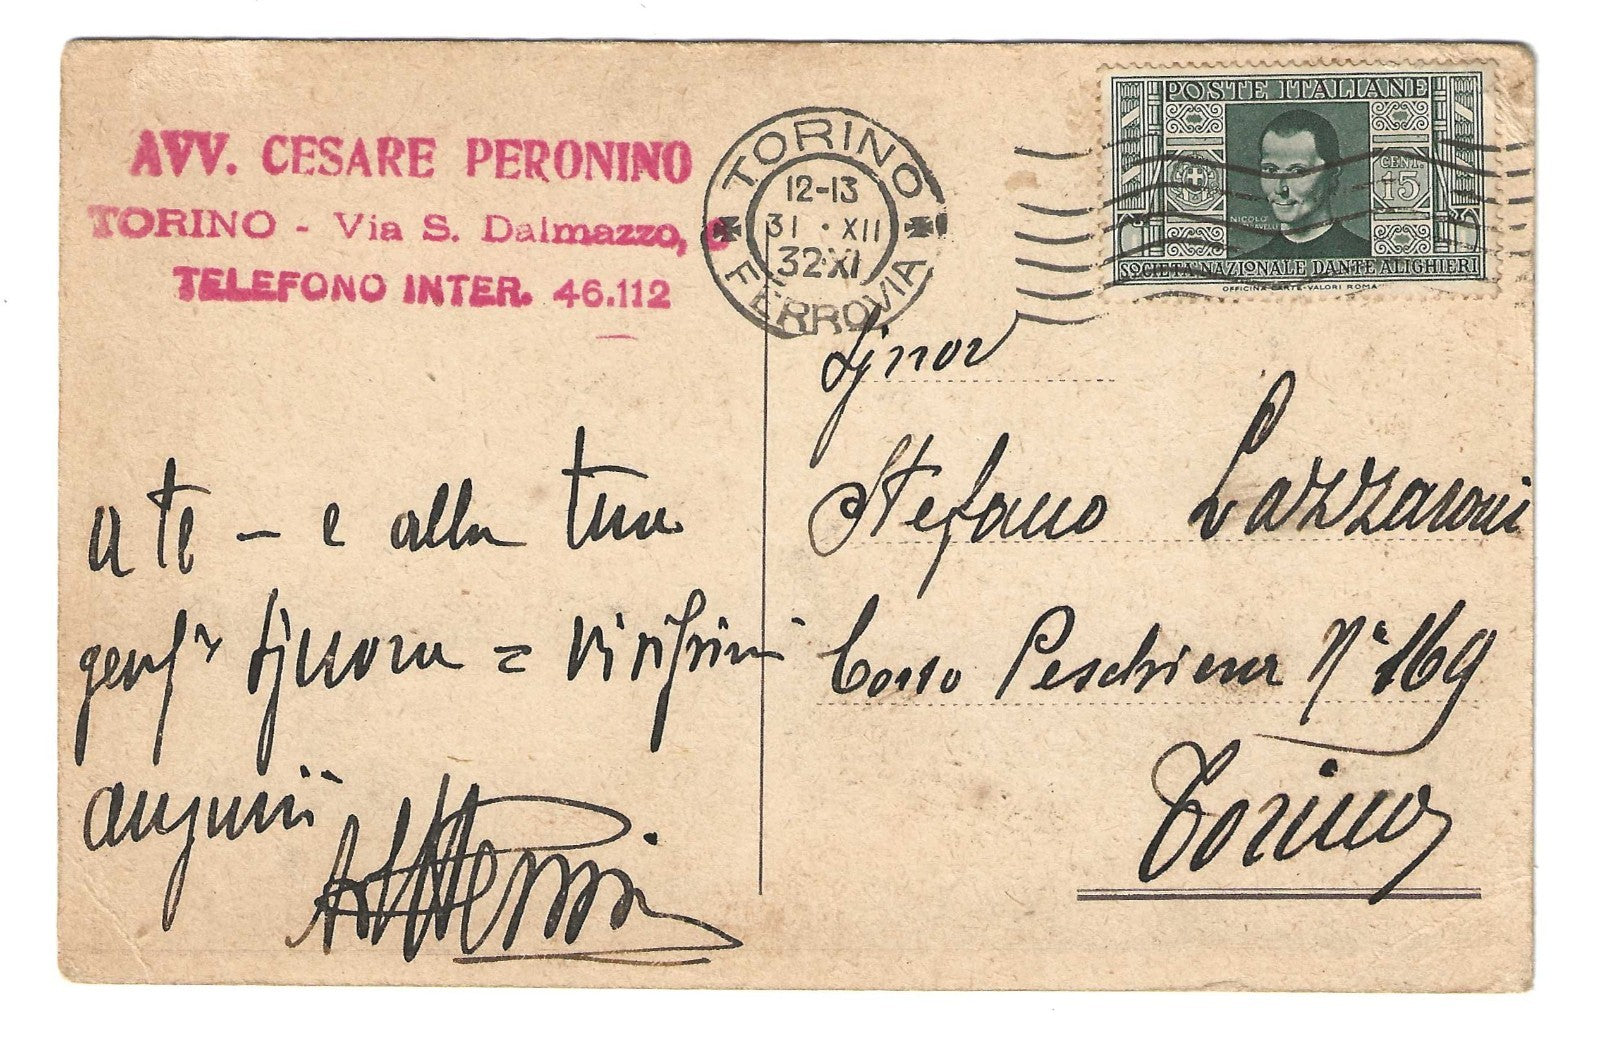 AVV. CESARE PERONINO
TORINO - Via S. Dalmazzo,
TELEFONO INTER. 46.112
TORINO
12-13
31 · XII
32·XI
FERROVIA
POSTE ITALIANE
CENT.
15
NICOLO
SOCIETÀ NAZIONALE DANTE ALIGHIERI
OFFICINA CARTE-VALORI ROMA
a te - e alla tua
signora =
auguri
Signor
Stefano Lazzaroni
Corso Peschiera N° 169
Torino